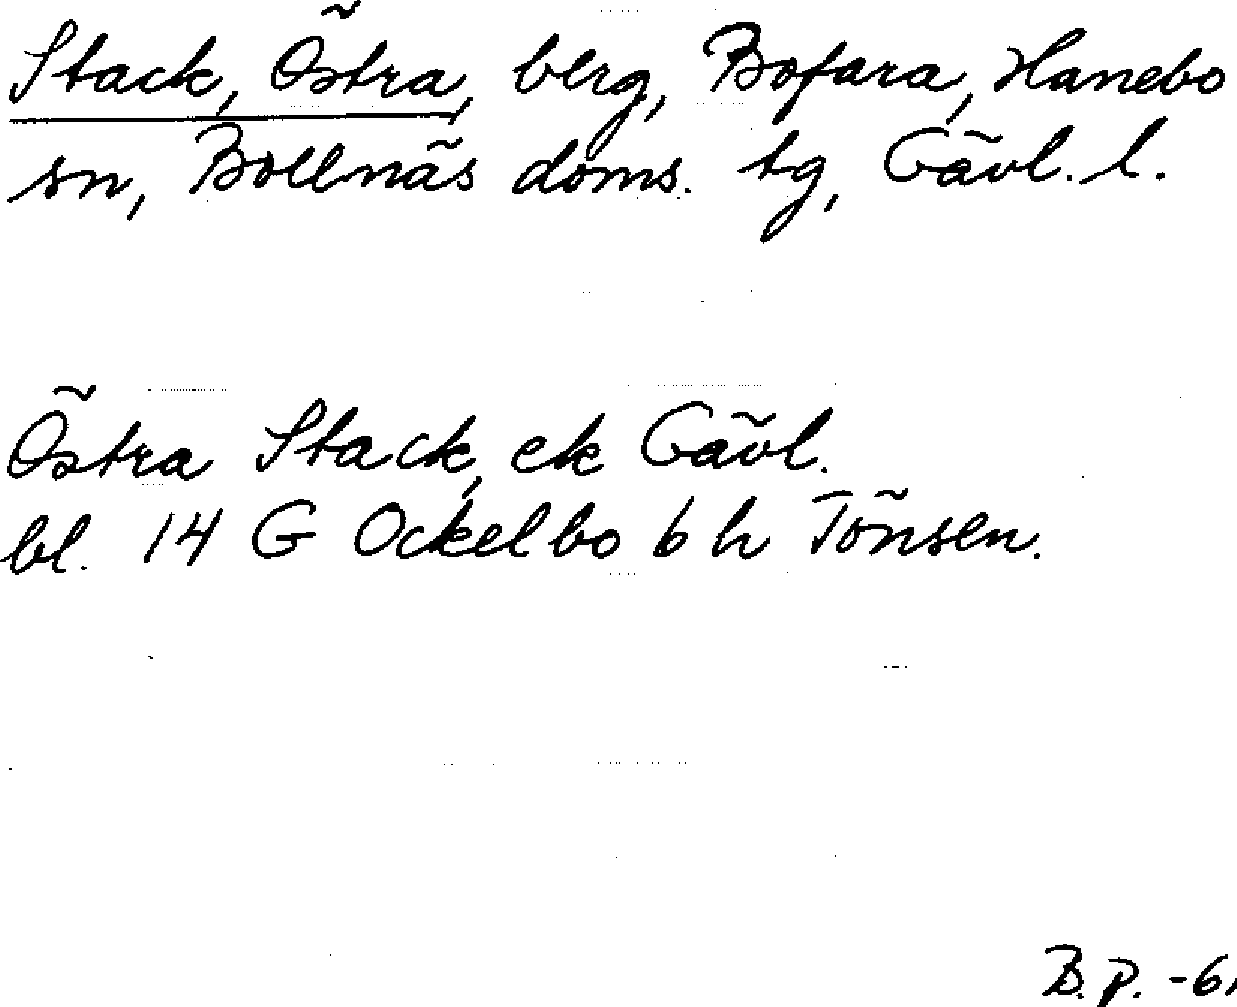 Stack, Östra, berg, Bofara, Hanebo
sn, Bollnäs doms. tg, Gävl. l.
Östra Stack, ek Gävl.
bl. 14 G Ockelbo b h Tönsen.
B.P. -6